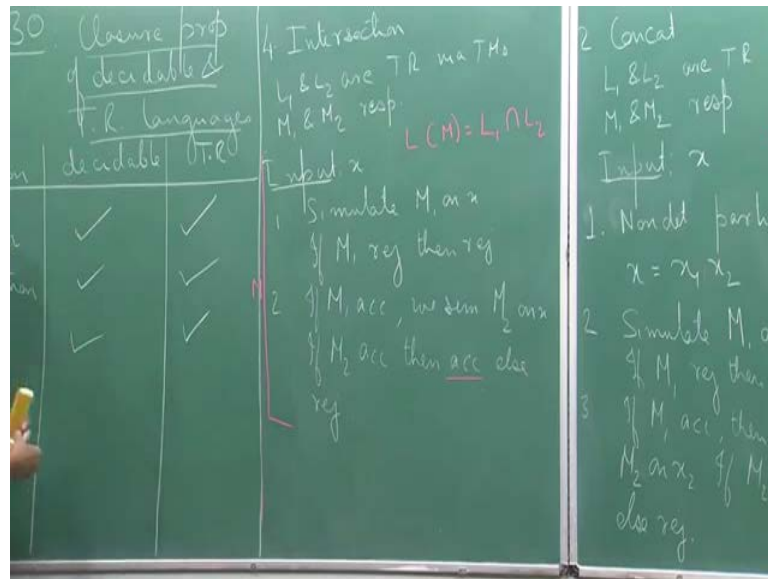 30. Closure prop
of decidable &
T.R. languages
decidable T.R
4. Intersection
L₁ & L₂ are TR via TMs
M₁ & M₂ resp.
L(M) = L₁ ∩ L₂
Input: x
1 Simulate M₁ on x
If M₁ rej then rej
M
2 If M₁ acc, we sim M₂ on x
If M₂ acc then acc else
rej
2 Concat
L₁ & L₂ are TR
M₁ & M₂ resp
Input: x
1. Nondet
x = x₁ x₂
2 Simulate M₁
If M₁ rej then
3 If M₁ acc, then
M₂ on x₂ If M₂
else rej.